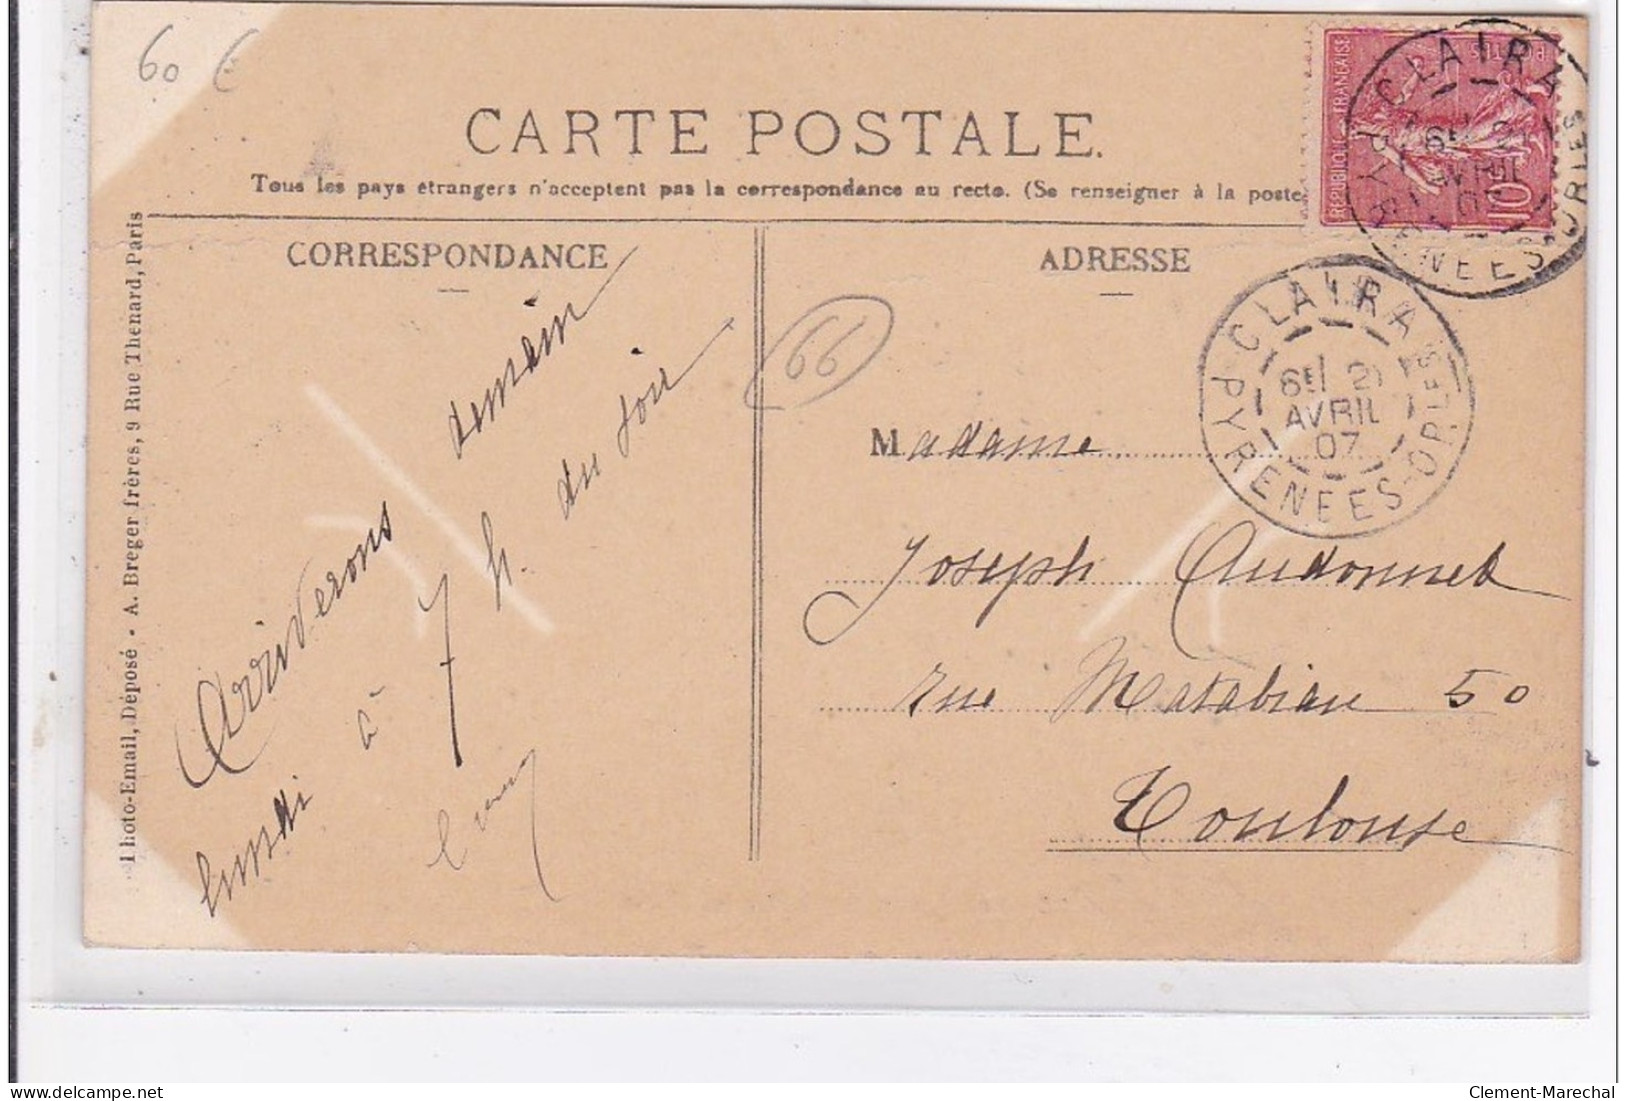 60 €
CARTE POSTALE.
Tous les pays étrangers n'acceptent pas la correspondance au recto. (Se renseigner à la poste
RÉPUBLIQUE FRANÇAISE
POSTES
10
CLAIRA
AVRIL
PYRENEES-ORIES
CORRESPONDANCE
ADRESSE
66
CLAIRA
6E
AVRIL
07
PYRENEES-ORLES
Arriverons demain
lundi à 7 h. du soir
Madame
Joseph Audonnet
rue Matabiau 50
Toulouse
Photo-Email, Déposé - A. Breger frères, 9 Rue Thenard, Paris
Clement-Marechal